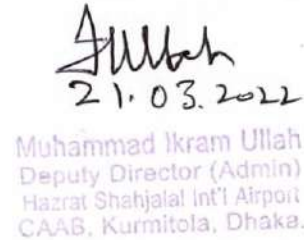 21.03.2022
Muhammad Ikram Ullah
Deputy Director (Admin)
Hazrat Shahjalal Int'l Airport
CAAB, Kurmitola, Dhaka.